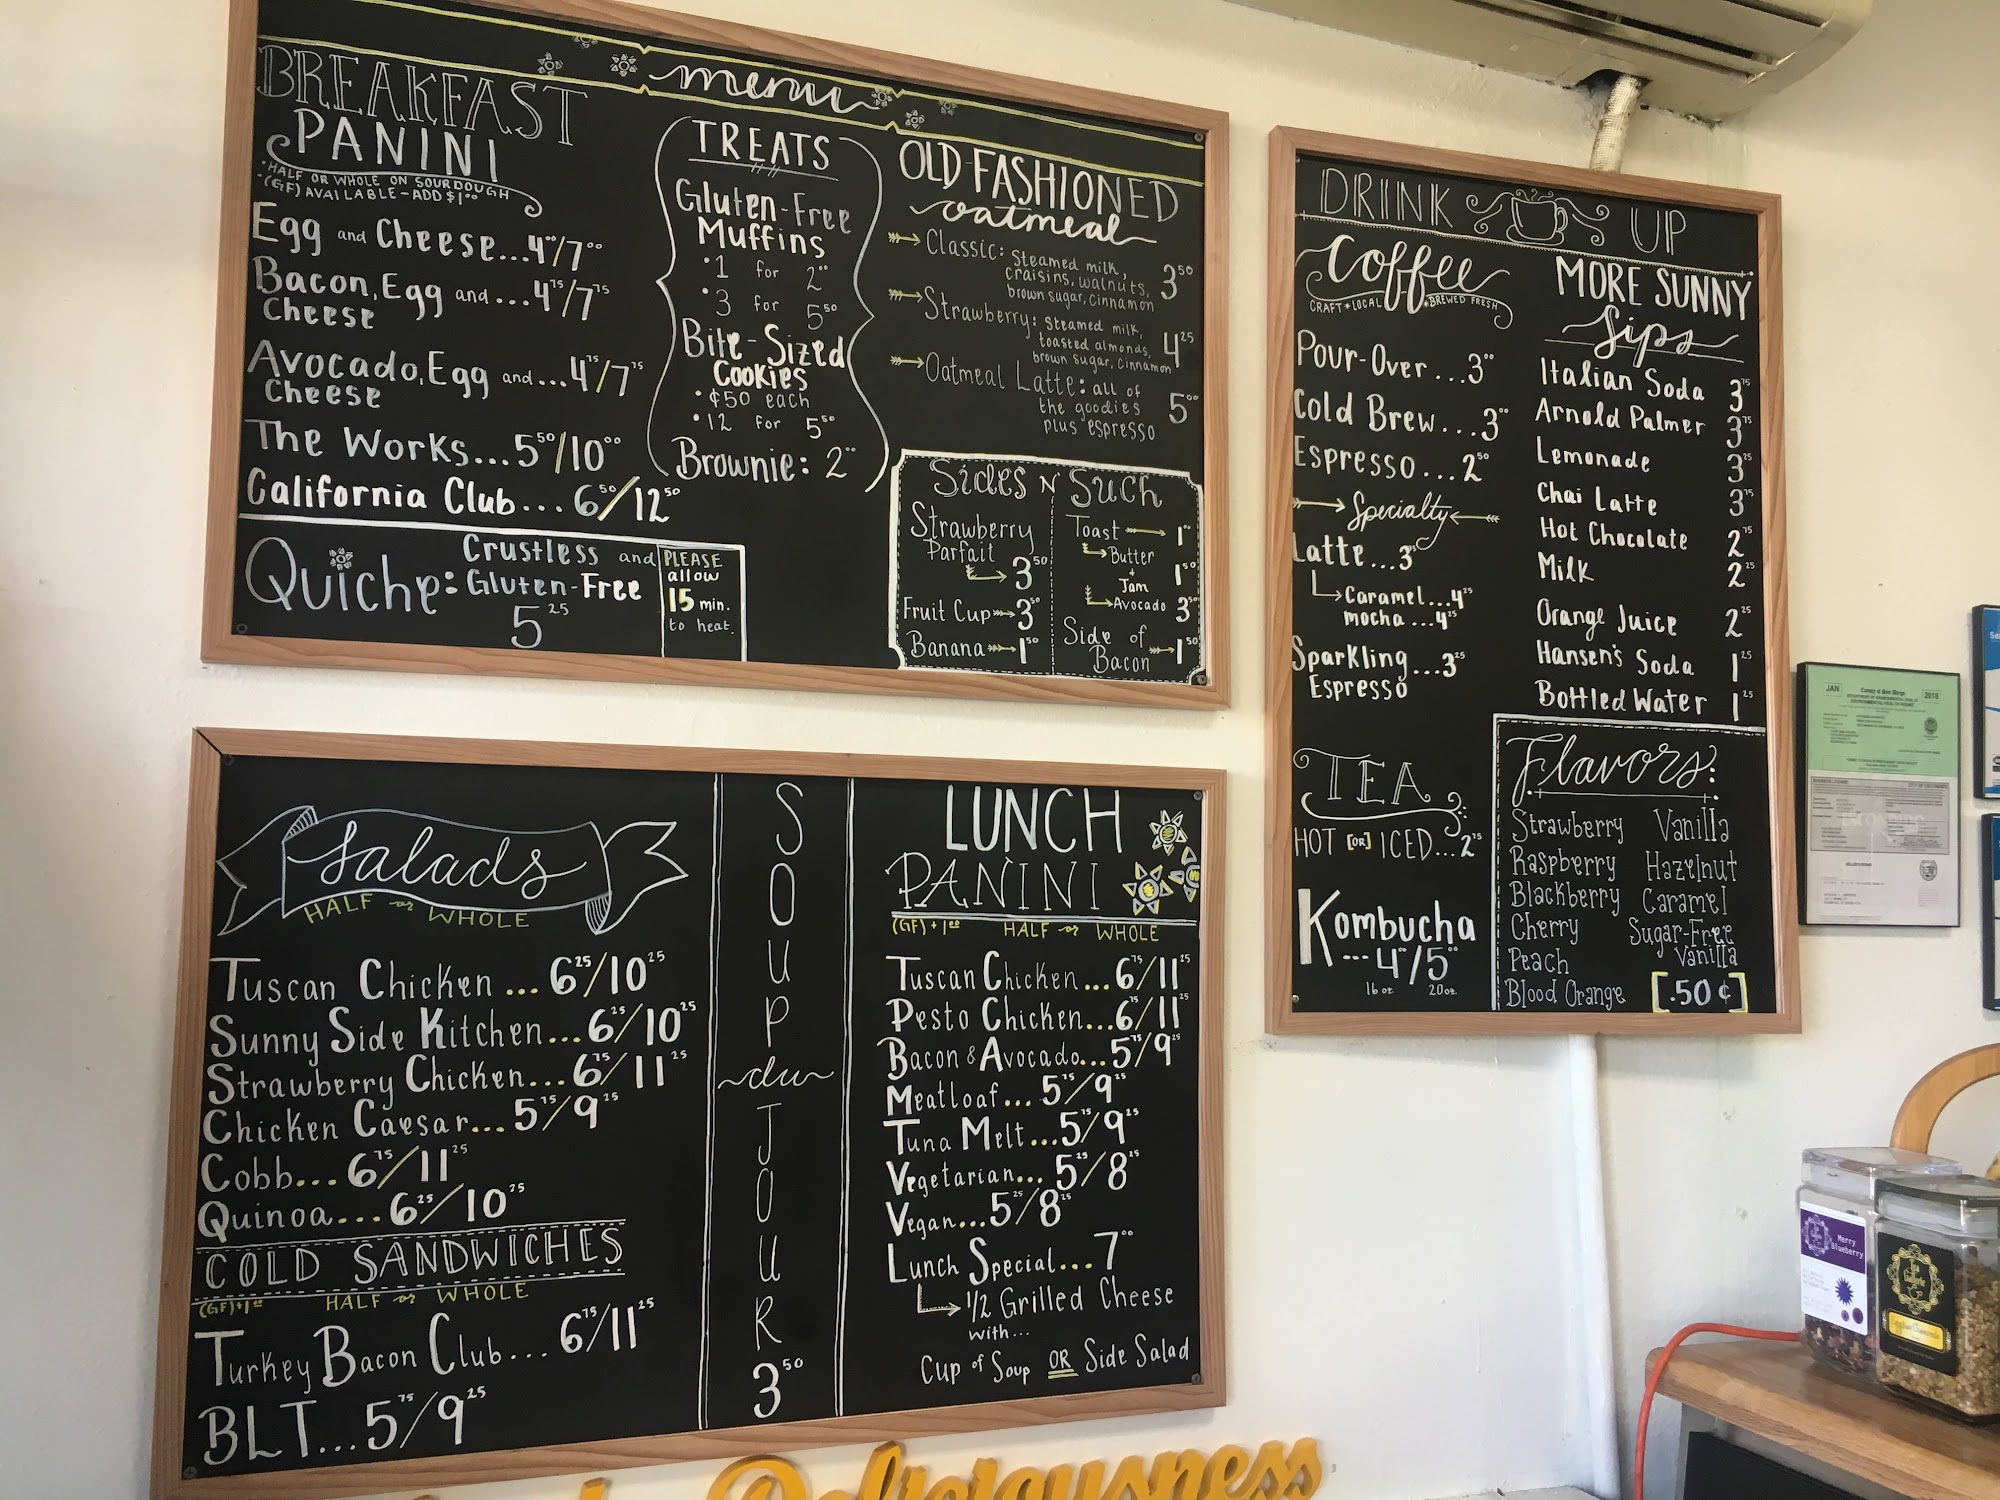 menu
BREAKFAST
PANINI
• HALF OR WHOLE ON SOURDOUGH
• (GF) AVAILABLE - ADD $1.00
Egg and Cheese...4.00/7.00
Bacon, Egg and ...4.75/7.75
Cheese
Avocado, Egg and...4.75/7.75
Cheese
The Works...5.50/10.00
California Club...6.50/12.50
Quiche: Crustless and
Gluten-Free
5.25
PLEASE
allow
15 min.
to heat.
TREATS
Gluten-Free
Muffins
• 1 for 2.00
• 3 for 5.50
Bite-Sized
Cookies
• ¢50 each
• 12 for 5.50
Brownie: 2.00
OLD-FASHIONED
oatmeal
Classic: steamed milk,
craisins, walnuts,
brown sugar, cinnamon 3.50
Strawberry: steamed milk,
toasted almonds,
brown sugar, cinnamon 4.25
Oatmeal Latte: all of
the goodies
plus espresso 5.00
Sides N' Such
Strawberry
Parfait
3.50
Fruit Cup 3.50
Banana 1.50
Toast 1.00
Butter
+
Jam 1.50
Avocado 3.50
Side of
Bacon 1.50
DRINK UP
Coffee
CRAFT • LOCAL • BREWED FRESH
Pour-Over...3.00
Cold Brew...3.00
Espresso...2.50
Specialty
Latte...3.75
Caramel...4.25
mocha...4.25
Sparkling...3.25
Espresso
TEA
HOT [OR] ICED...2.75
Kombucha
...4.00/5.00
16 oz. 20 oz.
MORE SUNNY
Sips
Italian Soda 3.75
Arnold Palmer 3.75
Lemonade 3.25
Chai Latte 3.75
Hot Chocolate 2.75
Milk 2.25
Orange Juice 2.25
Hansen's Soda 1.25
Bottled Water 1.25
Flavors:
Strawberry Vanilla
Raspberry Hazelnut
Blackberry Caramel
Cherry Sugar-Free
Vanilla
Peach
Blood Orange [.50¢]
Salads
HALF or WHOLE
Tuscan Chicken...6.25/10.25
Sunny Side Kitchen...6.25/10.25
Strawberry Chicken...6.75/11.25
Chicken Caesar...5.75/9.25
Cobb...6.75/11.25
Quinoa...6.25/10.25
COLD SANDWICHES
(GF)+1.00 HALF or WHOLE
Turkey Bacon Club...6.75/11.25
BLT...5.75/9.25
SOUP
du
JOUR
3.50
LUNCH
PANINI
(GF)+1.00 HALF or WHOLE
Tuscan Chicken...6.75/11.25
Pesto Chicken...6.75/11.25
Bacon & Avocado...5.75/9.25
Meatloaf...5.75/9.25
Tuna Melt...5.75/9.25
Vegetarian...5.25/8.25
Vegan...5.25/8.25
Lunch Special...7.00
1/2 Grilled Cheese
with...
Cup of Soup OR Side Salad
Deliciousness
JAN
County of San Diego
2018
Merry
Blueberry
Egyptian Chamomile